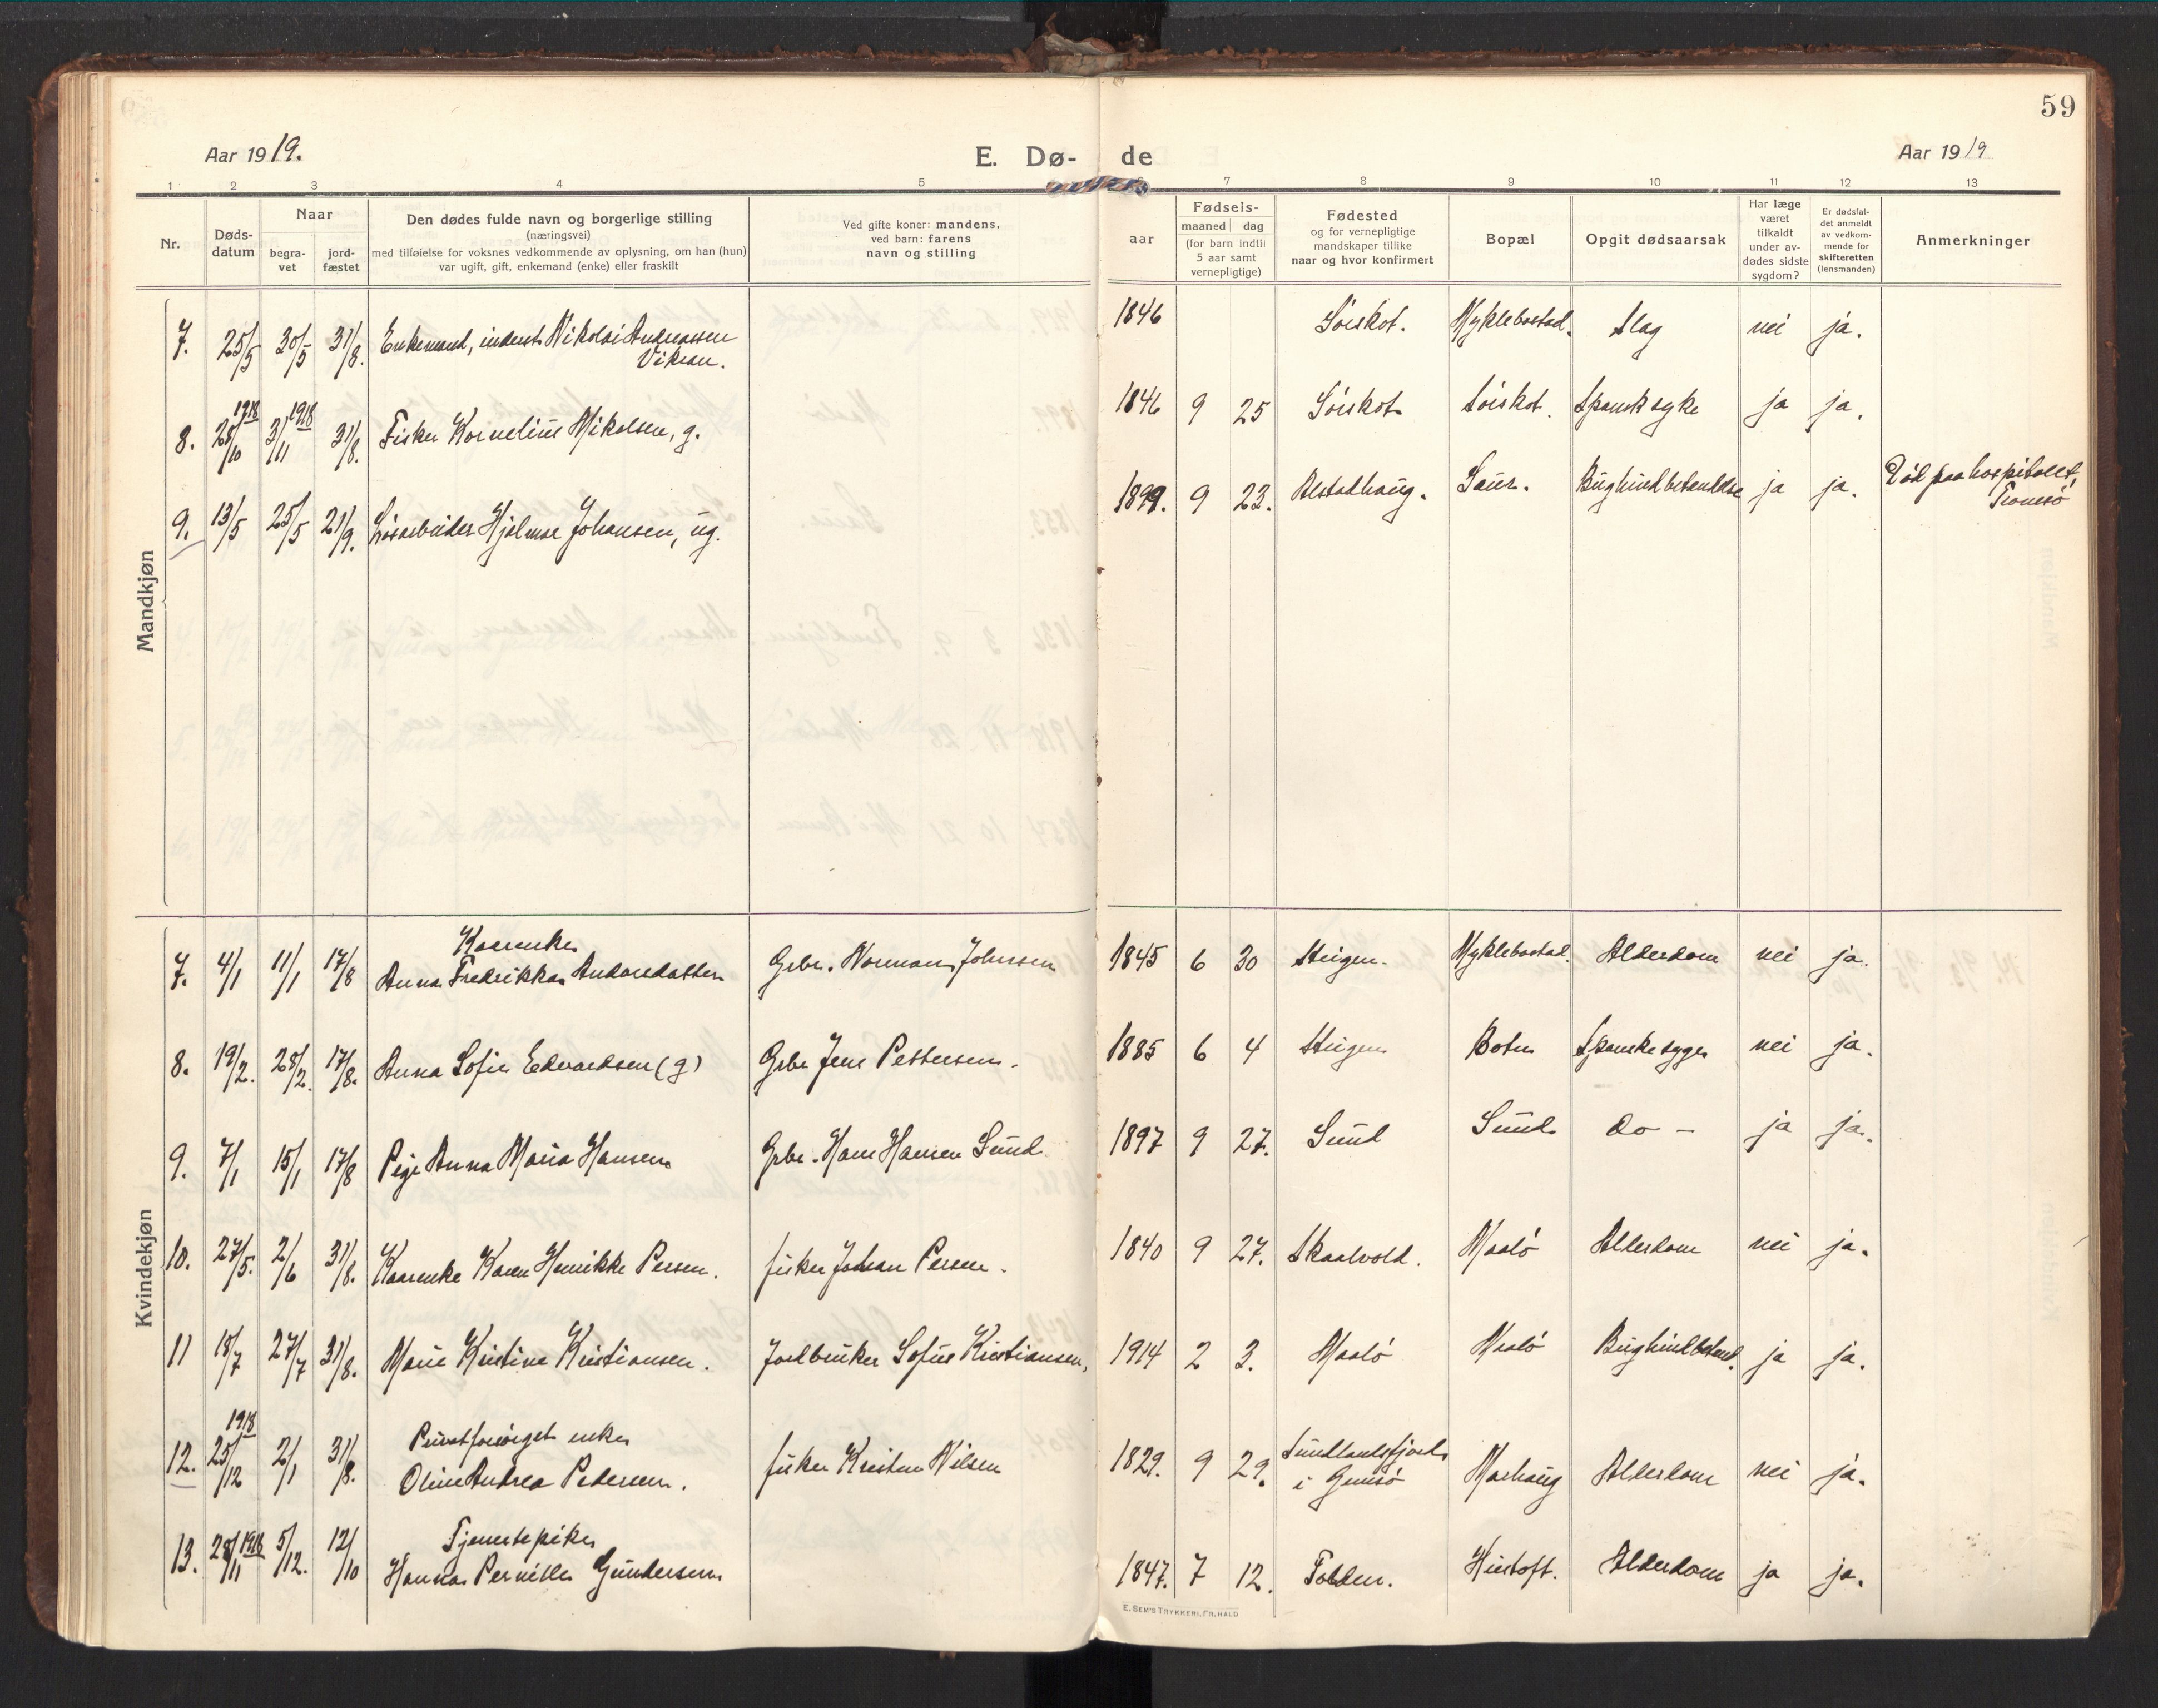 59
Aar 1919.
E. Dø- de
Aar 1919
1 2 3 4 5 7 8 9 10 11 12 13
Nr.
Døds-
datum
Naar
begra-
vet
jord-
fæstet
Den dødes fulde navn og borgerlige stilling
(næringsvei)
med tilføielse for voksnes vedkommende av oplysning, om han (hun)
var ugift, gift, enkemand (enke) eller fraskilt
Ved gifte koner: mandens,
ved barn: farens
navn og stilling
Fødsels-
aar
maaned dag
(for barn indtil
5 aar samt
vernepligtige)
Fødested
og for vernepligtige
mandskaper tillike
naar og hvor konfirmert
Bopæl
Opgit dødsaarsak
Har læge
været
tilkaldt
under av-
dødes sidste
sygdom?
Er dødsfal-
det anmeldt
av vedkom-
mende for
skifteretten
(lensmanden)
Anmerkninger
Mandkjøn
7. 25/5 30/5 31/8. Enkemand, inderst Nikolai Andreassen
Vikran.
1846 Sørskot. Myklebostad. Slag nei ja.
1918 1918
8. 28/10 3/11 31/8. Fisker Kornelius Mikalsen, g. 1846 9 25 Sørskot Sørskot. Spansksyke ja ja.
9. 13/5 25/5 21/9. Løsarbeider Hjalmar Johansen, ug. 1899. 9 23. Alstadhaug. Laur. Bughindbetændelse ja ja. Død paa hospitalet,
Tromsø
Kvindekjøn
Kaarenke
7. 4/1 11/1 17/8 Anna Fredrikka Andorsdatter Grbr. Normann Johnsen 1845 6 30 Steigen. Myklebostad. Alderdom nei ja.
8. 19/2. 28/2. 17/8. Anna Sofie Edvardsen (g) Grbr Jens Pettersen. 1885 6 4 Steigen Botn Spanskesyge nei ja.
9. 7/1 15/1 17/8 Pige Anna Maria Hansen Grbr. Hans Hansen Sund 1897 9 27. Sund Sund Do - ja ja.
10. 27/5. 2/6 31/8. Kaarenke Karen Henrikke Persen. fisker Johan Persen. 1840 9 27. Skaalvold. Maalø Alderdom nei ja.
11 18/7 27/7 31/8. Marie Kristine Kristiansen. Jordbruker Sofus Kristiansen, 1914 2 3. Maalø Maalø Bughindbetænd. ja ja.
1918
12. 25/12 2/1 31/8. Privatforsørget enke
Oline Andrea Pedersen. fisker Kristen Nilsen 1829. 9 29. Sundlandsfjord
i Gimsø Marhaug Alderdom nei ja.
13. 28/11 1918 5/12. 12/10 Tjenestepike
Hanna Pernille Gundersen 1847. 7 12. Folden. Hustoft. Alderdom ja ja.
E. SEM'S TRYKKERI, FR.HALD